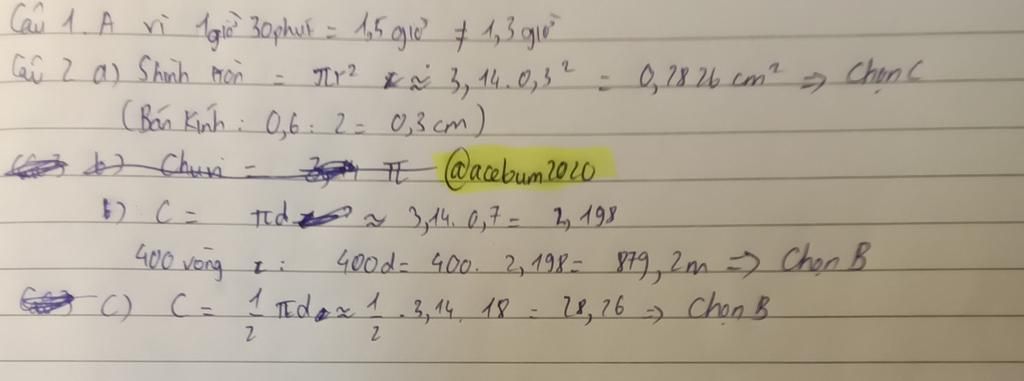 Câu 1. A vì 1giờ 30phút = 1,5 giờ ≠ 1,3 giờ
Câu 2 a) Shình tròn = πr² ≈ 3,14.0,3² = 0,2826 cm² => Chọn C
(Bán Kính : 0,6 : 2 = 0,3 cm)
b) Chu vi = π @acebum2020
b) C = πd ≈ 3,14. 0,7 = 2,198
400 vòng : 400d = 400. 2,198 = 879,2m => Chọn B
C) C = 1/2 πd ≈ 1/2 . 3,14. 18 = 28,26 => Chọn B